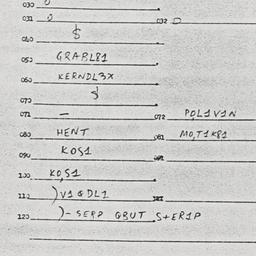 030 0
031 0 032 0
040 $
050 GRABL81
060 KERNDL3X
$
070
071 — 072 POL1V1N
080 HENT 081 MO,T1K81
090 KOS1
100 KO,S1
110 )V1&DL1
120 )-SERP GBUT S+ER1P